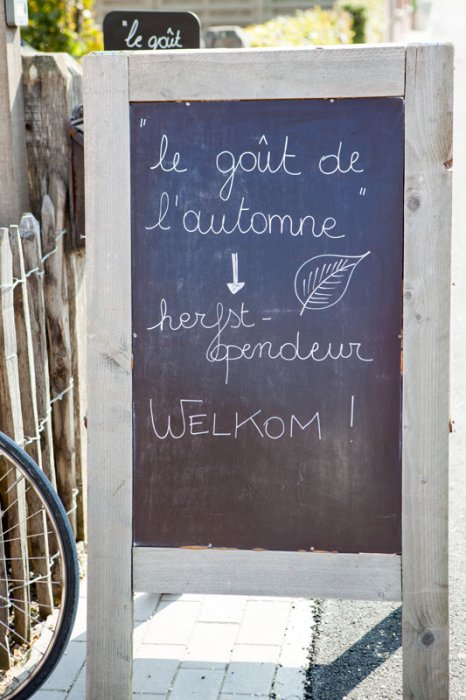 "le goût
"le goût de
l'automne"
herfst-
opendeur
WELKOM !